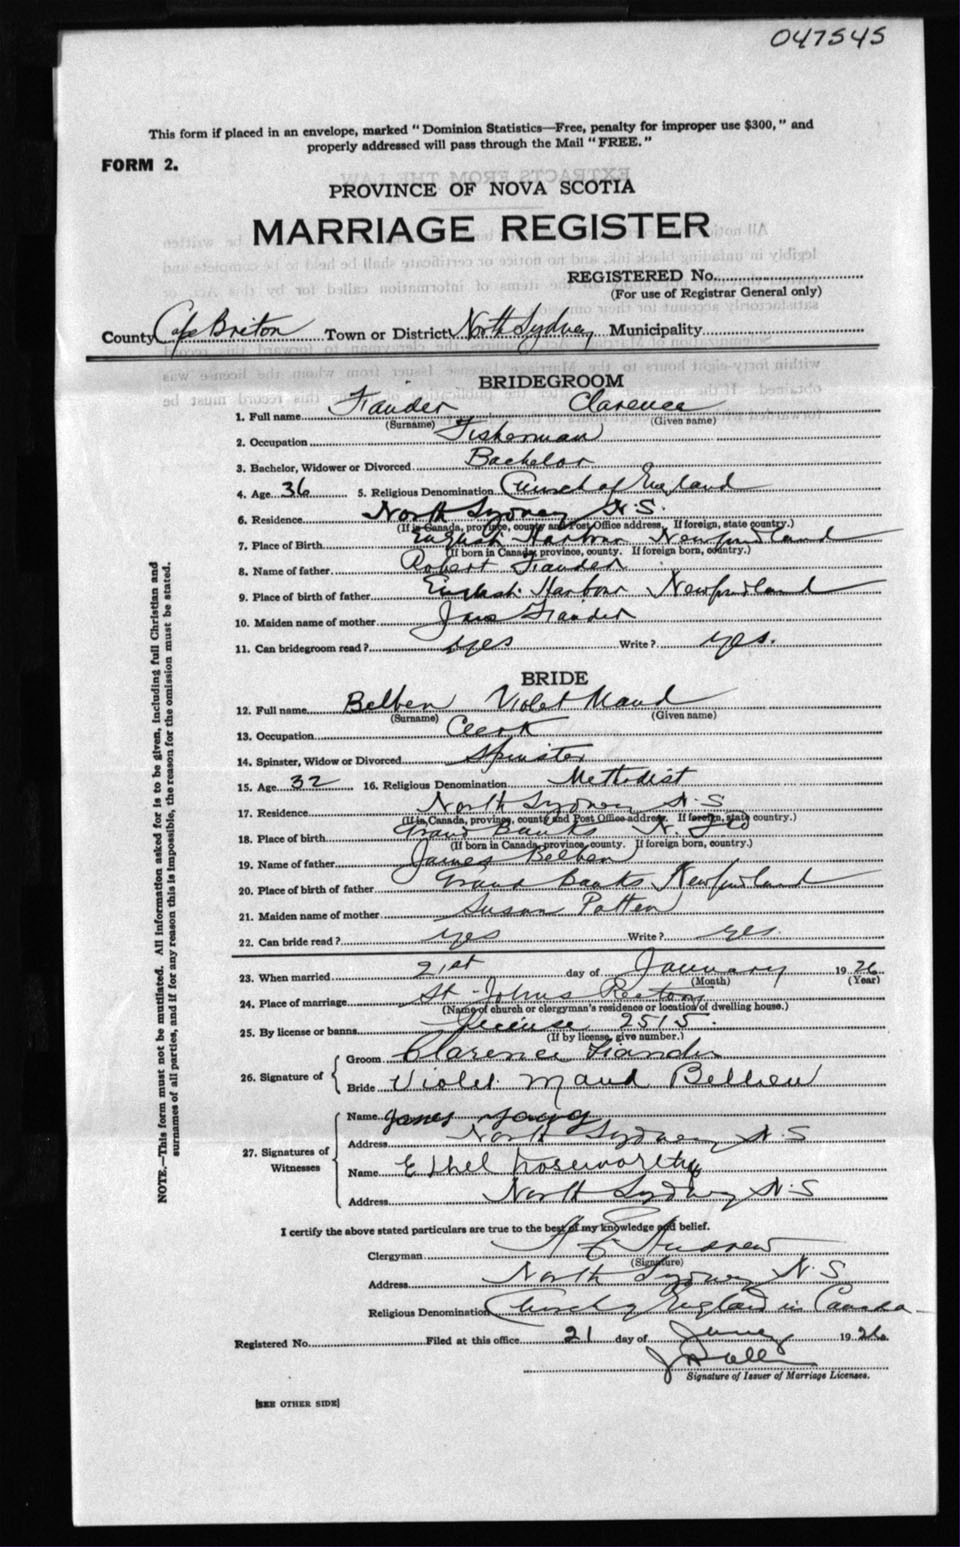 047545
This form if placed in an envelope, marked "Dominion Statistics—Free, penalty for improper use $300," and
properly addressed will pass through the Mail "FREE."
FORM 2.
PROVINCE OF NOVA SCOTIA
MARRIAGE REGISTER
REGISTERED No.
(For use of Registrar General only)
County Cape Briton Town or District North Sydney Municipality
BRIDEGROOM
1. Full name Fiander Clarence
(Surname) (Given name)
2. Occupation Fisherman
3. Bachelor, Widower or Divorced Bachelor
4. Age 36 5. Religious Denomination Church of England
6. Residence North Sydney N.S.
(If in Canada, province, county and Post Office address. If foreign, state country.)
7. Place of Birth English Harbour Newfoundland
(If born in Canada, province, county. If foreign born, country.)
8. Name of father Robert Fiander
9. Place of birth of father English Harbour Newfoundland
10. Maiden name of mother Jane Fiander
11. Can bridegroom read? yes Write? yes.
BRIDE
12. Full name Belben Violet Maud
(Surname) (Given name)
13. Occupation Clerk
14. Spinster, Widow or Divorced Spinster
15. Age 32 16. Religious Denomination Methodist
17. Residence North Sydney N.S
(If in Canada, province, county and Post Office address. If foreign, state country.)
18. Place of birth Grand Banks N. Fld
(If born in Canada, province, county. If foreign born, country.)
19. Name of father James Belben
20. Place of birth of father Grand Banks Newfoundland
21. Maiden name of mother Susan Patten
22. Can bride read? yes Write? yes.
23. When married 21st day of January 1926
(Month) (Year)
24. Place of marriage St. Johns Rectory
(Name of church or clergyman's residence or location of dwelling house.)
25. By license or banns license 2515.
(If by license, give number.)
26. Signature of Groom Clarence Fiander
Bride Violet Maud Belben
27. Signatures of Witnesses Name James Young
Address North Sydney N.S
Name Ethel Noseworthy
Address North Sydney N.S
I certify the above stated particulars are true to the best of my knowledge and belief.
Clergyman Andrew
(Signature)
Address North Sydney N.S
Religious Denomination Church of England in Canada
Registered No. Filed at this office 21 day of Jany 1926
Signature of Issuer of Marriage Licenses.
[SEE OTHER SIDE]
NOTE.—This form must not be mutilated. All information asked for is to be given, including full Christian and
surnames of all parties, and if for any reason this is impossible, the reason for the omission must be stated.